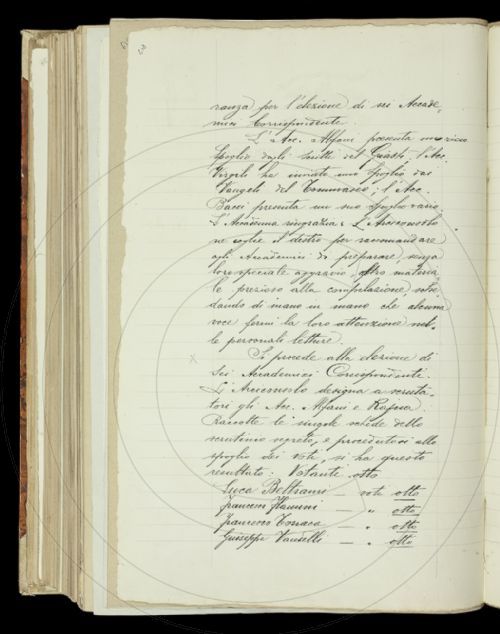 ranza per l'elezione di sei Accade,
mici Corrispondente.
L'Acc. Alfani presenta un ricco
spoglio dagli scritti del Guasti, l'Acc.
Vegoli ha inviato uno spoglio dai
Vangeli del Tommaseo; l'Acc.
Bacci presenta un suo spoglio vario.
L'Accademia ringrazia e L'Arciconsolo
ne coglie il destro per raccomandare
agli Accademici di preparare, senza
loro speciale aggravio, altro materia
le prezioso alla compilazione, sche,
dando di mano in mano che alcuna
voce fermi la loro attenzione nel,
le personali letture.
Si procede alla elezione di
sei Accademici Corrispondenti.
L'Arciconsolo designa a scruta,
tori gli Acc. Alfani e Rajna.
Raccolte le singole schede dello
scrutinio segreto, e procedutosi allo
spoglio dei voti, si ha questo
resultato: Votanti otto
Luca Beltrami — voti otto
Francesco Flamini — " otto
Francesco Torraca — " otto
Giuseppe Vandelli — " otto